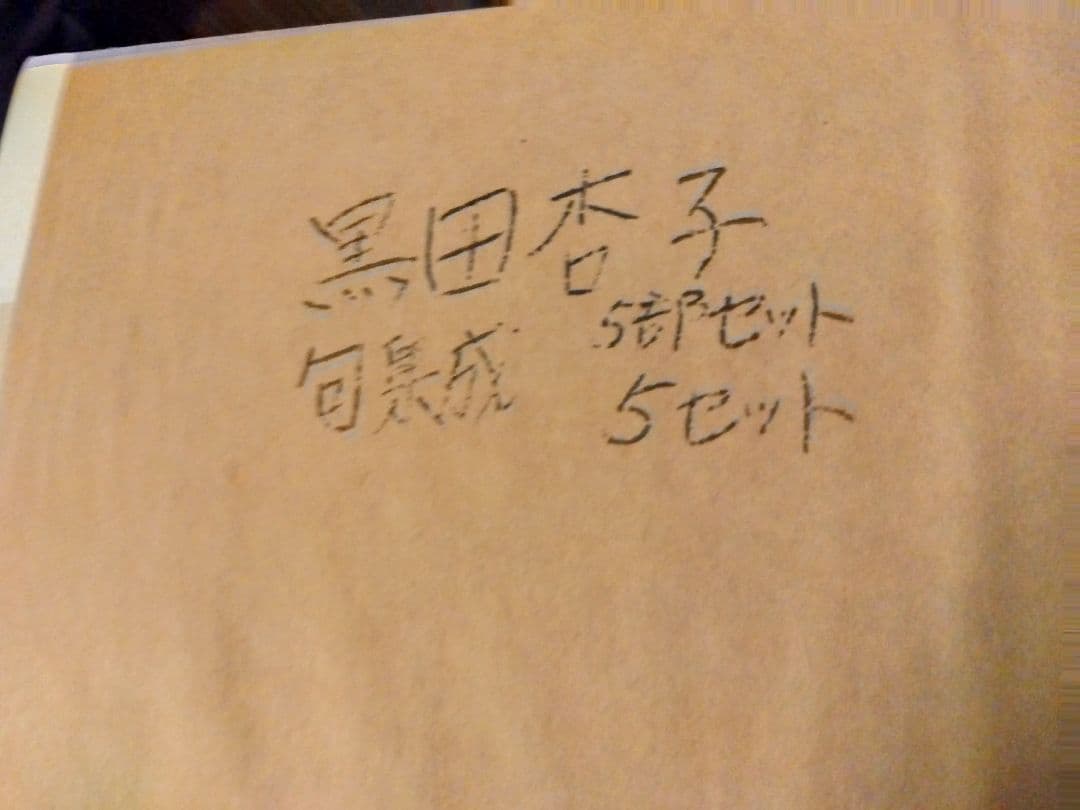 黒田杏子
5部セット
句集成
5セット